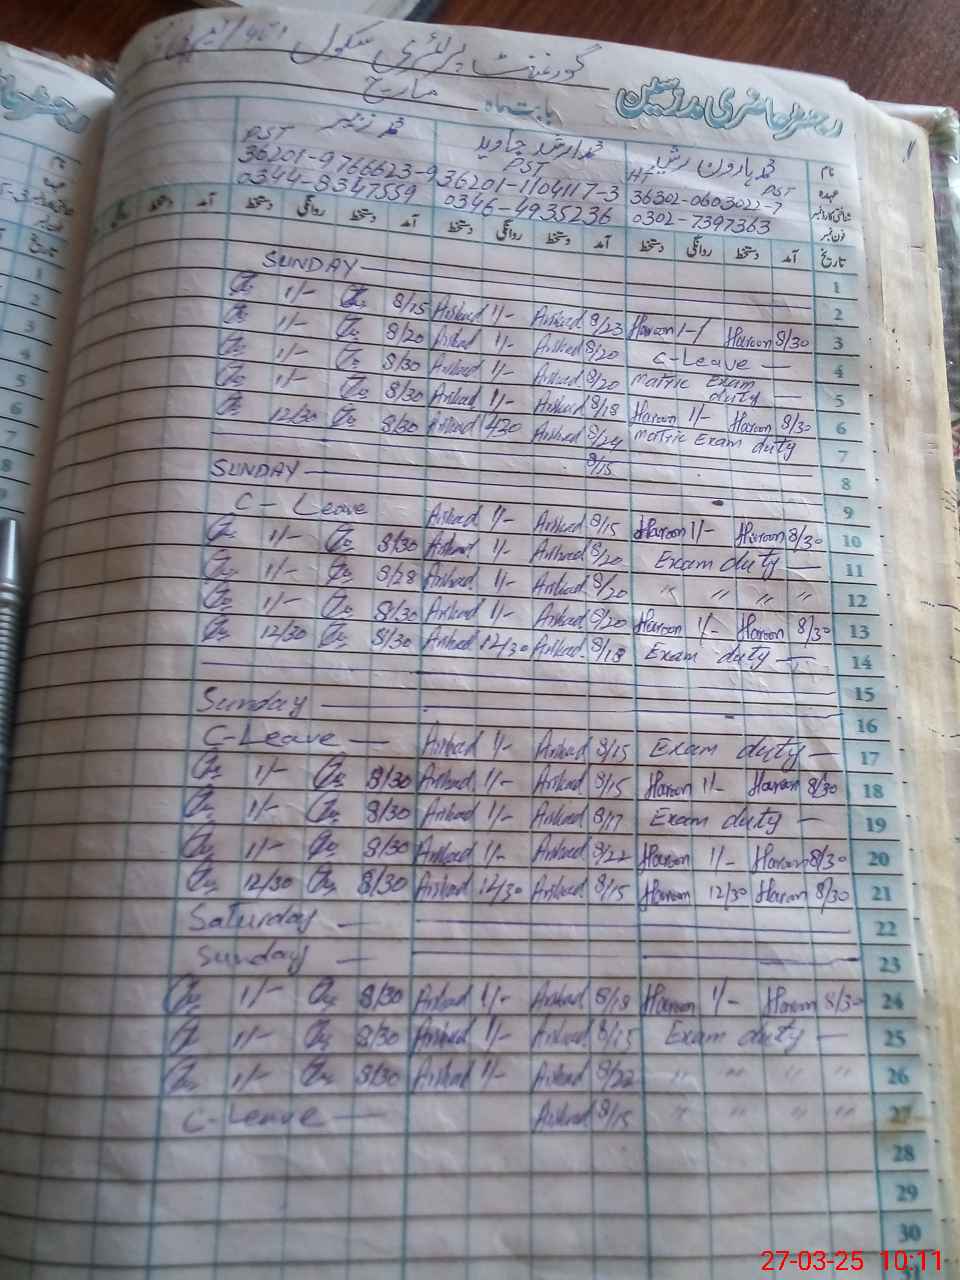 گورنمنٹ پرائمری سکول
رجسٹر حاضری مدرسین بابت ماہ مارچ
نام محمد ہارون رشید محمد ارشد جاوید محمد زبیر
عہدہ HT PST PST PST
شناختی کارڈ نمبر 36302-0603022-7 36201-1104117-3 36201-9766623-9
فون نمبر 0302-7397363 0346-4935236 0344-3347559
تاریخ آمد دستخط روانگی دستخط آمد دستخط روانگی دستخط آمد دستخط روانگی دستخط آمد دستخط روانگی
1
SUNDAY 2
1/- 8/15 Arshad 1/- Arshad 8/23 Haroon 1-/ Haroon 8/30 3
1/- 8/20 Arshad 1/- Arshad 8/20 C-Leave 4
1/- 8/30 Arshad 1/- Arshad 8/20 Matric Exam duty 5
1/- 8/30 Arshad 1/- Arshad 8/18 Haroon 1/- Haroon 8/30 6
12/30 8/30 Arshad Arshad 8/24 Matric Exam duty 7
8/15 8
SUNDAY 9
C-Leave Arshad 1/- Arshad 8/15 Haroon 1/- Haroon 8/30 10
1/- 8/30 Arshad 1/- Arshad 8/20 Exam duty 11
1/- 8/28 Arshad 1/- Arshad 8/20 " " " " 12
1/- 8/30 Arshad 1/- Arshad 8/20 Haroon 1/- Haroon 8/30 13
12/30 8/30 Arshad 12/30 Arshad 8/18 Exam duty 14
15
Sunday 16
C-Leave Arshad 1/- Arshad 8/15 Exam duty 17
1/- 8/30 Arshad 1/- Arshad 8/15 Haroon 1/- Haroon 8/30 18
1/- 8/30 Arshad 1/- Arshad 8/17 Exam duty 19
1/- 8/30 Arshad 1/- Arshad 8/22 Haroon 1/- Haroon 8/30 20
12/30 8/30 Arshad 12/30 Arshad 8/15 Haroon 12/30 Haroon 8/30 21
Saturday 22
Sunday 23
1/- 8/30 Arshad 1/- Arshad 8/18 Haroon 1/- Haroon 8/30 24
1/- 8/30 Arshad 1/- Arshad 8/15 Exam duty 25
1/- 8/30 Arshad 1/- Arshad 8/22 " " " " 26
C-Leave Arshad 8/15 " " " " 27
28
29
30
27-03-25 10:11